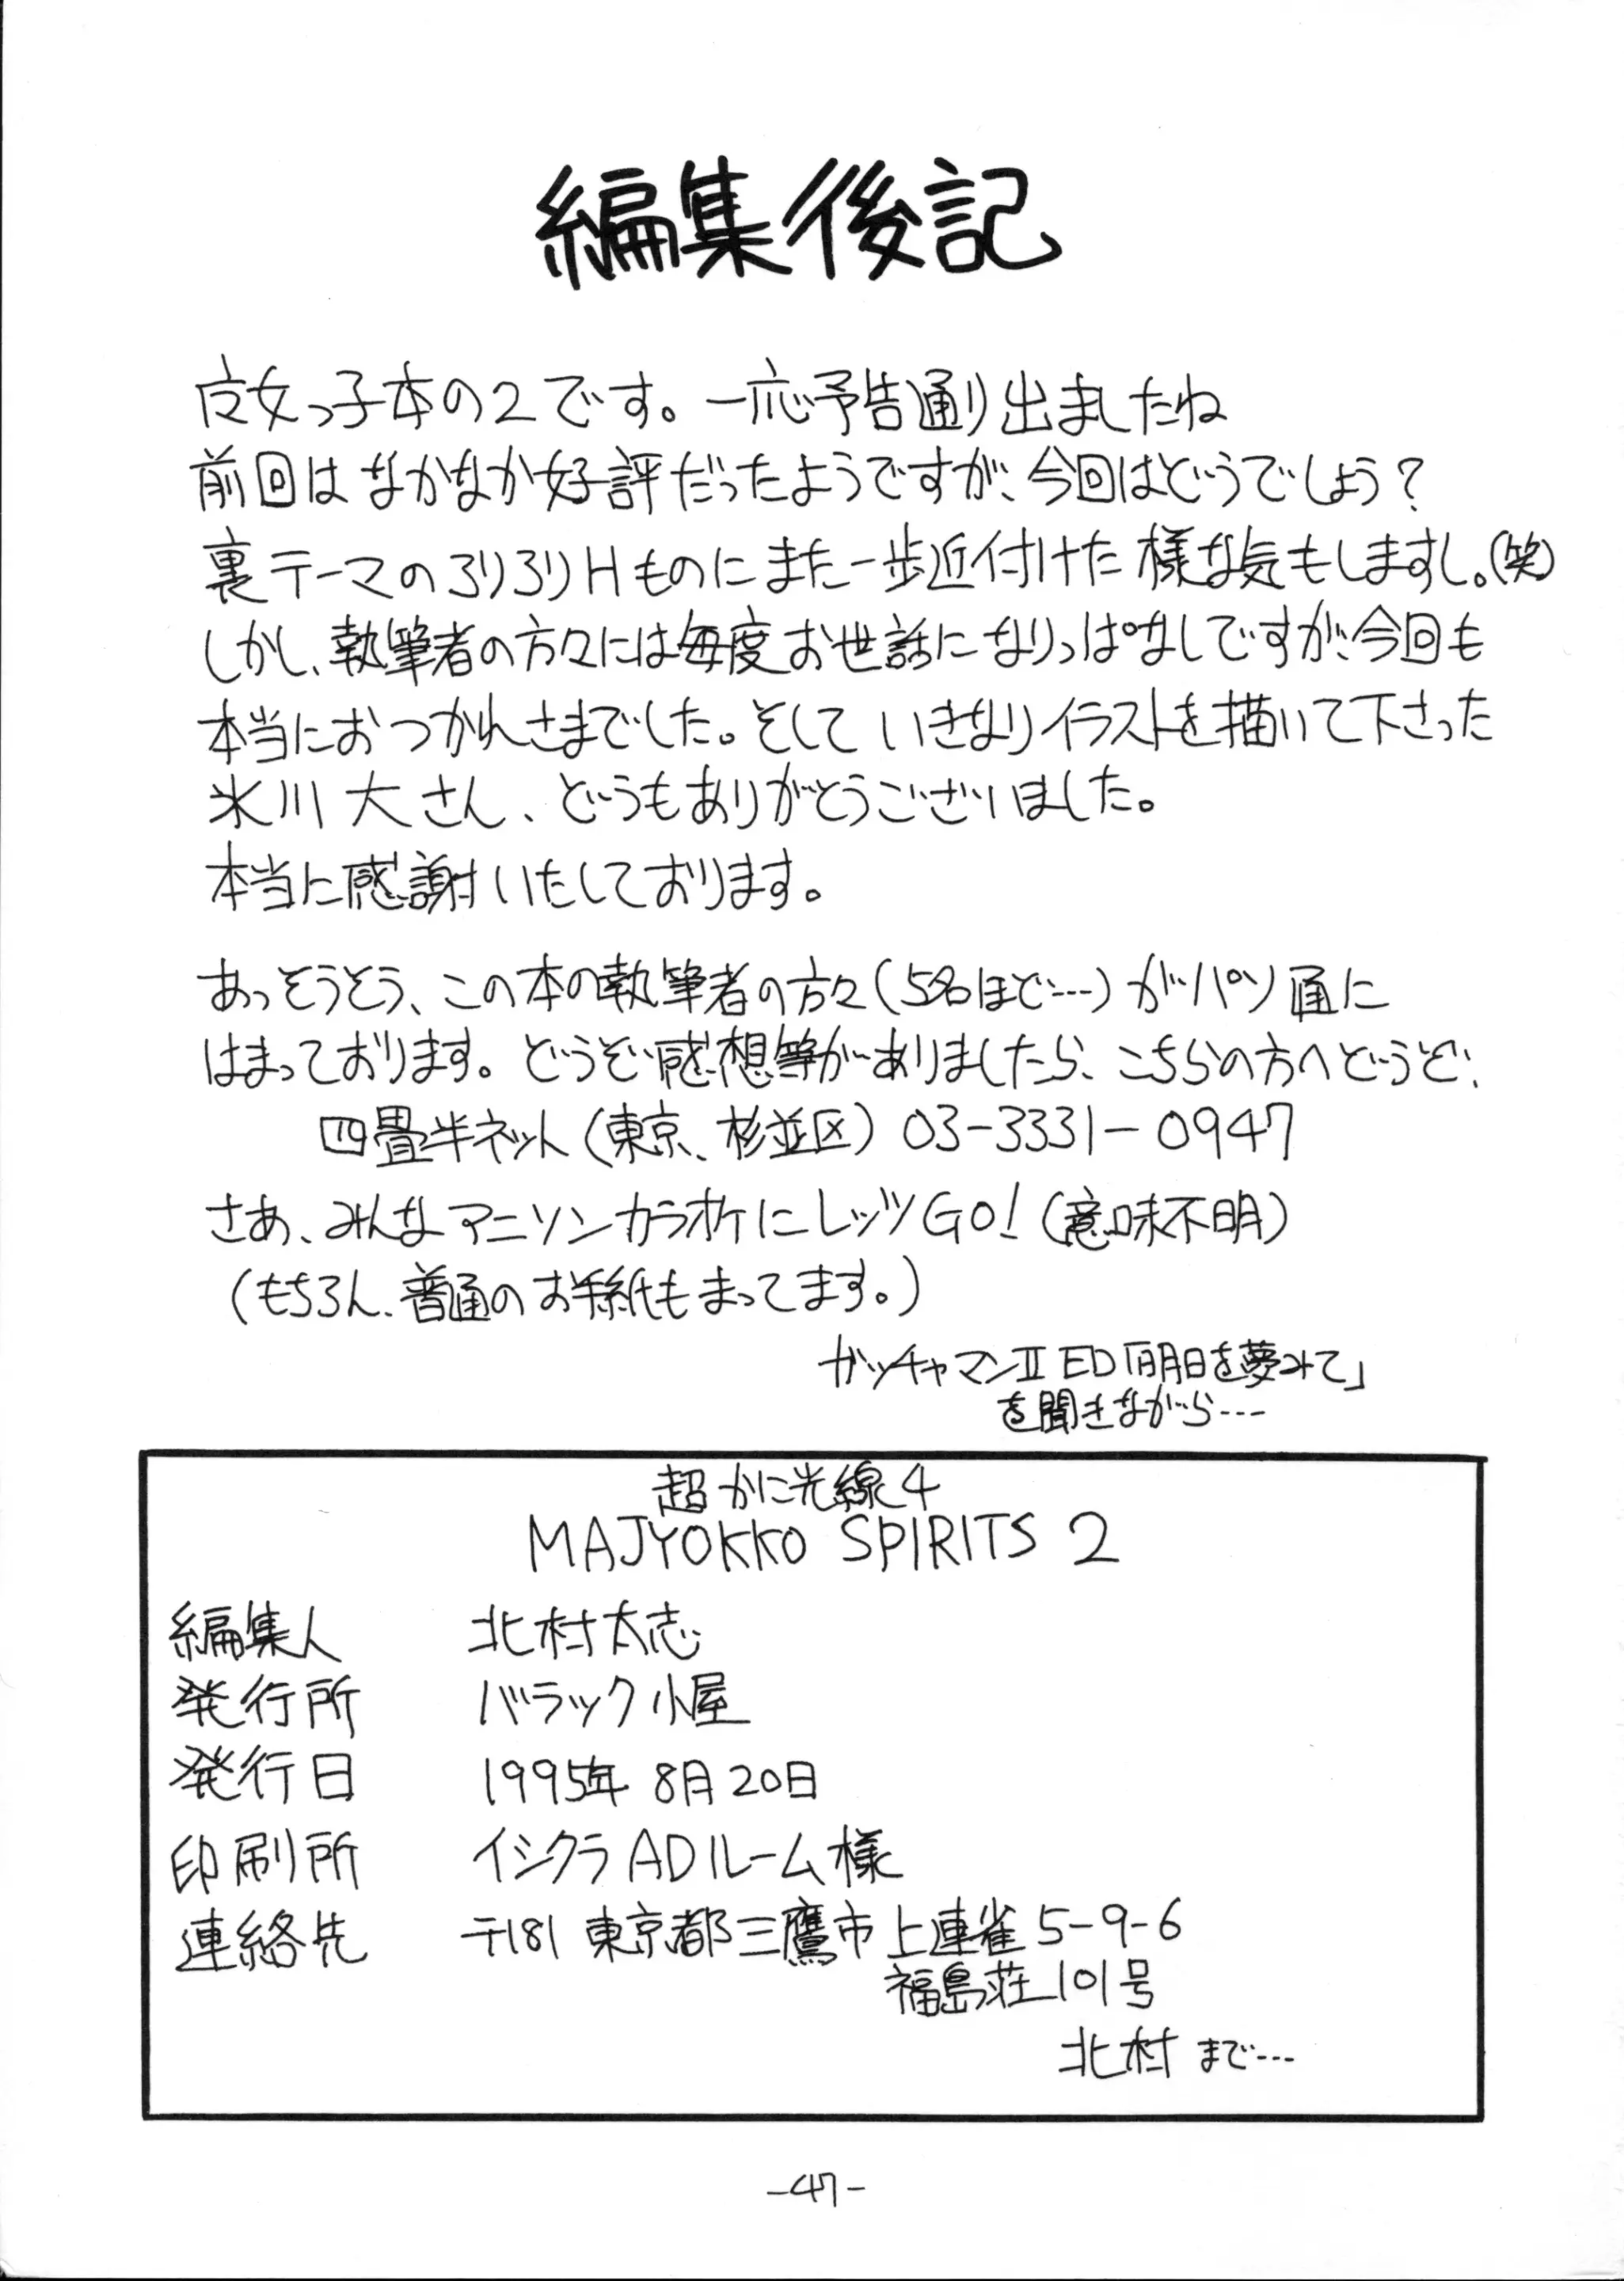 編集後記
魔女っ子本の2です。一応予告通り出ましたね
前回はなかなか好評だったようですが、今回はどうでしょう?
裏テーマのろりろりHものにまた一歩近付けた様な気もしますし。(笑)
しかし、執筆者の方々には毎度お世話になりっぱなしですが、今回も
本当におつかれさまでした。そしていきなりイラストを描いて下さった
氷川大さん、どうもありがとうございました。
本当に感謝いたしております。
あっそうそう、この本の執筆者の方々(5名ほど…)がパソ通に
はまっております。どうぞ感想等がありましたら、こちらの方へどうぞ、
四畳半ネット(東京、杉並区) 03-3331-0947
さあ、みんなアニソンカラオケにレッツGO!(意味不明)
(もちろん、普通のお手紙もまってます。)
ガッチャマンII ED「明日を夢みて」
を聞きながら…
超かに光線4
MAJYOKKO SPIRITS 2
編集人 北村太志
発行所 バラック小屋
発行日 1995年 8月20日
印刷所 イシクラADルーム様
連絡先 〒181 東京都三鷹市上連雀5-9-6
福島荘101号
北村まで…
-47-